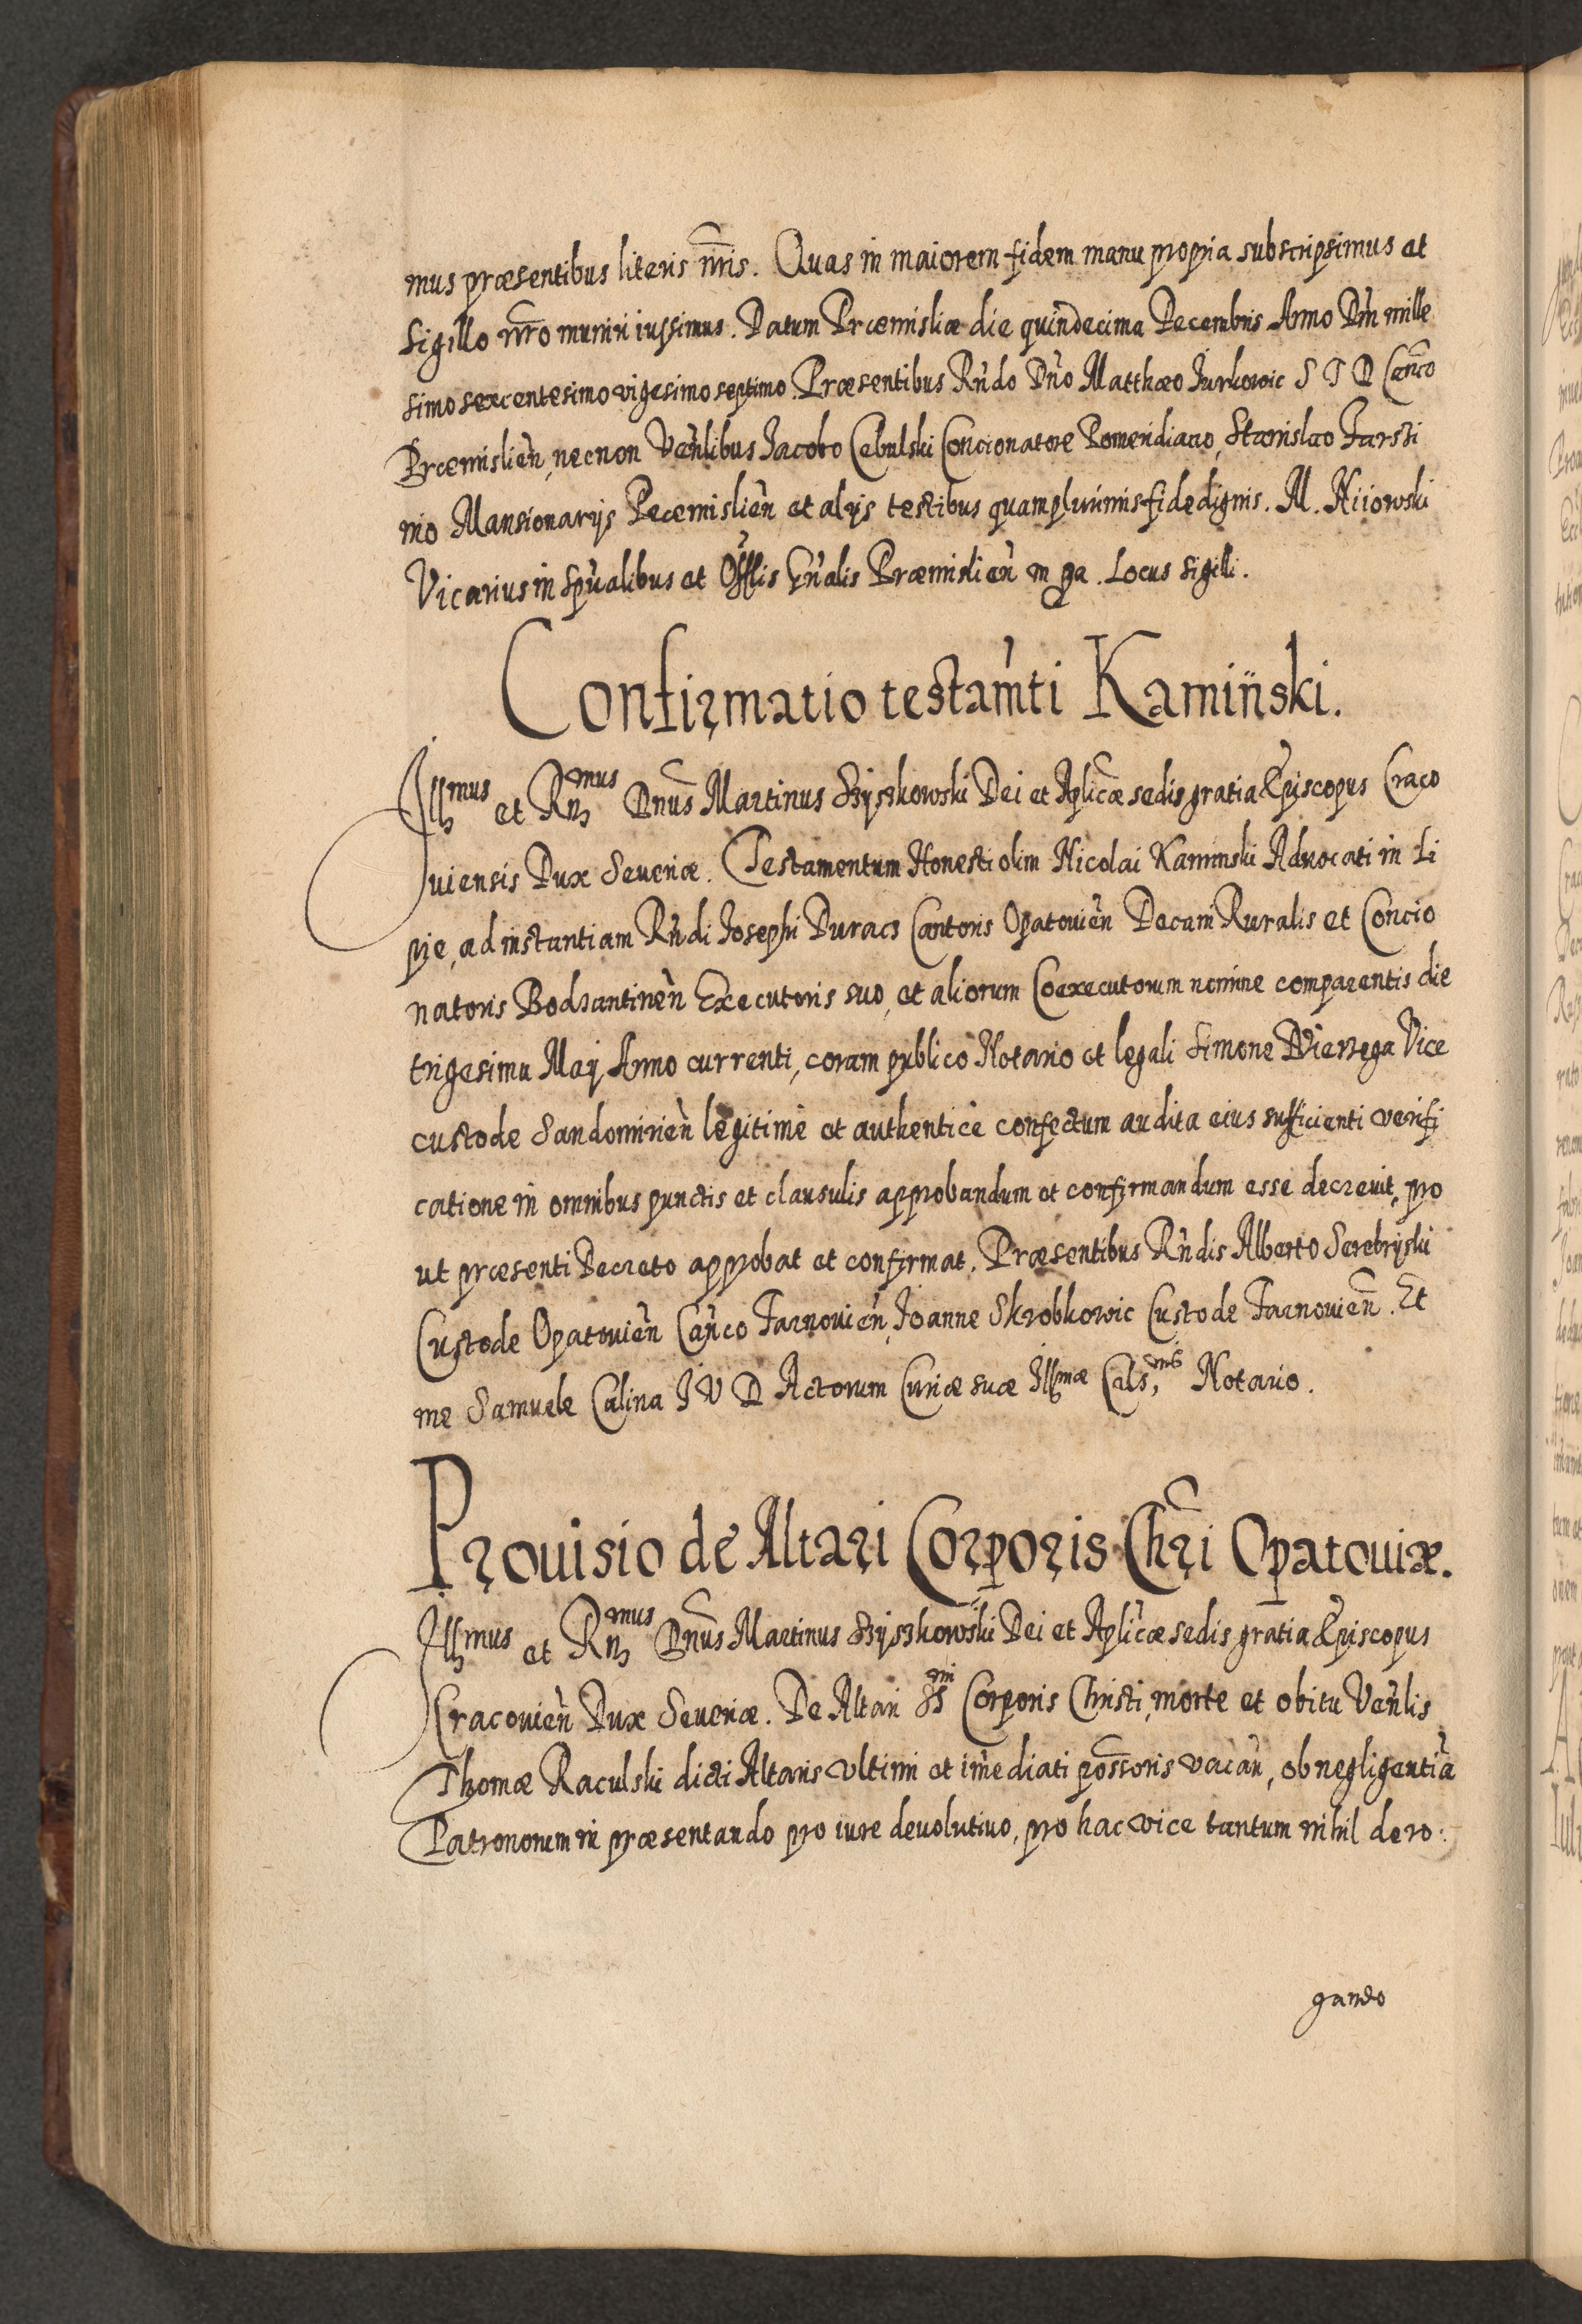 mus præsentibus literis nr̃is. Quas in maiorem fidem manu propria subscripsimus et
Sigillo nr̃o muniri iussimus. Datum Præmisliæ die quindecima Decembris Anno Dñi mille
simo sexcentesimo vigesimo septimo. Præsentibus Rńdo Dńo Matthæo Jurkowic S T D Canco
Præmislień, necnon Veńlibus Jacobo Cebulski Concionatore Pomeridiano, Stanislao Farsti
nio Mansionarijs Pręmislień et alijs testibus quamplurimis fide dignis. M.
Vicarius in Spu͂alibus et Offlis Gńalis Præmislień m pa. Locus Sigilli.
Confirmatio testam̃ti Kamiński.
Illmus et Rńmus Dnũs Martinus Szyszkowski Dei et Aplicæ sedis gratia Episcopus Craco
uiensis Dux Seueriæ. Testamentum Honesti olim Nicolai Kaminski Aduocati in Li
pie, ad instantiam Rńdi Josephi Duracs Cantoris Opatouień Decani Ruralis et Concio
natoris Bodzantineń Executoris suo, et aliorum Coexecutorum nomine comparentis die
trigesima Maij Anno currenti, coram publico Notario et legali Simone Wierzega Vice
custode Sandomirień legitimè et authenticè confectum audita eius sufficienti verifi
catione in omnibus punctis et clausulis approbandum et confirmandum esse decreuit, pro
ut præsenti Decreto approbat et confirmat. Præsentibus Rńdis Alberto Serebryski
Custode Opatouień Cańco Tarnouień, Joanne Skrobkowic Custode Tarnouień. Et
me Samuele Calina J V D Actorum Curiæ suæ Illmæ Cels,nis Notario.
Prouisio de Altari Corporis Chri Opatouiæ.
Illmus et Rńmus Dnũs Martinus Szyszkowski Dei et Aplicæ sedis gratia Episcopus
Cracouień Dux Seueriæ. De Altari Ssmi Corporis Christi, morte et obitu Veńlis
Thomæ Raculski dicti Altaris ultimi et im̃ediati possoris vacań, ob negligentiã
Patronorum in præsentando pro iure deuolutiuo, pro hac vice tantum nihil dero
gando